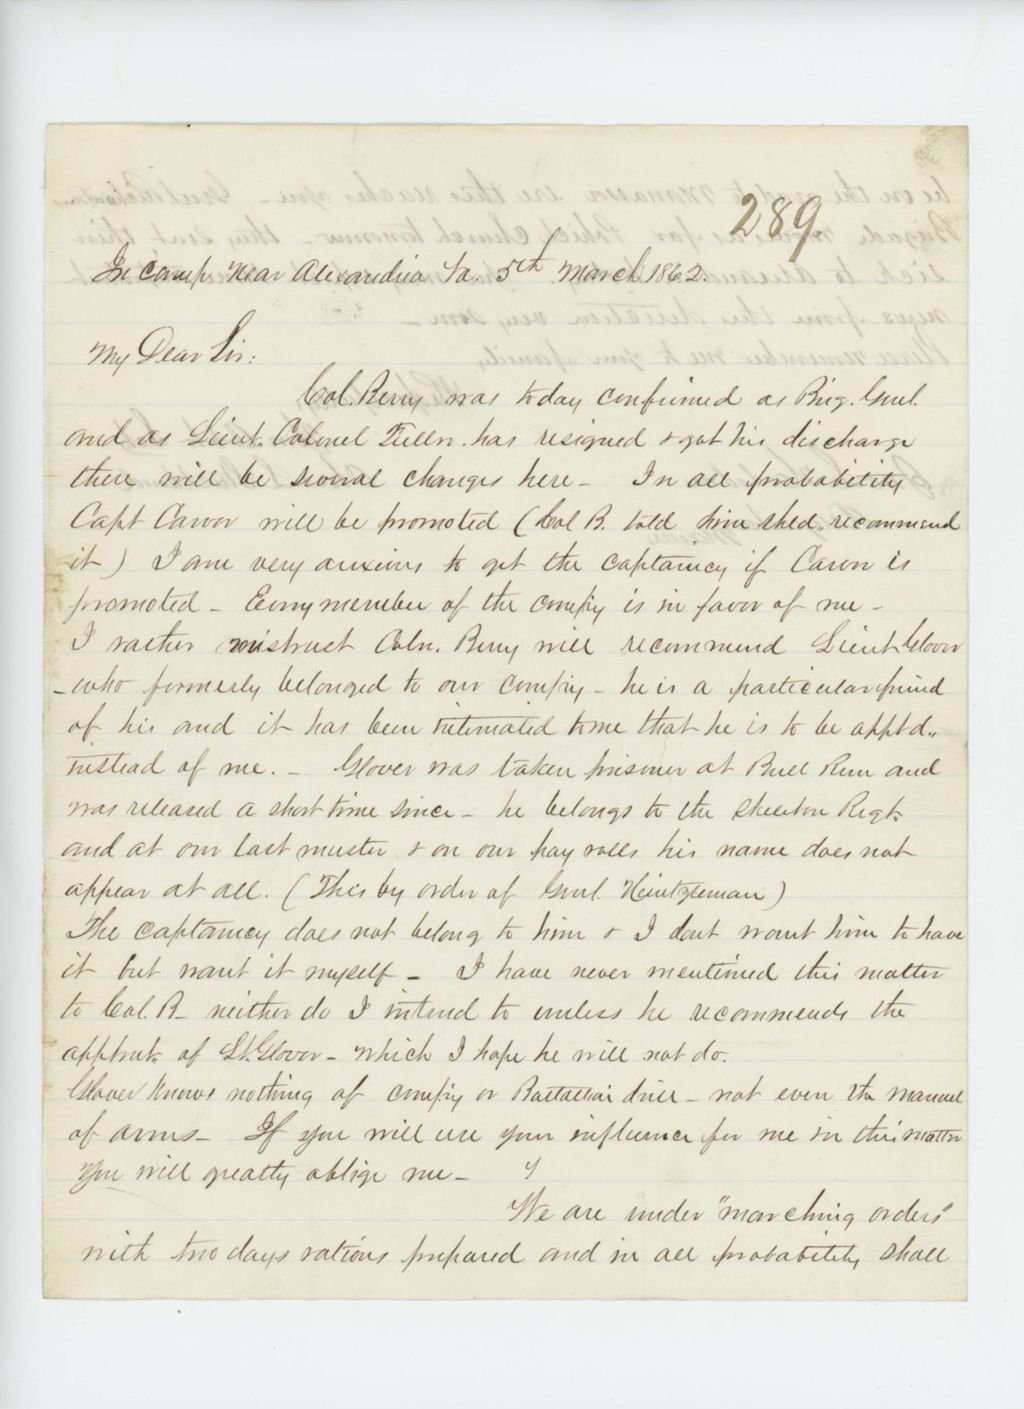 289.
In Camp Near Alexandria Va. 5th March 1862.
My Dear Sir:
Col. Berry was today confirmed as Brig. Genl.
and as Lieut. Colonel has resigned & got his discharge
there will be several changes here - In all probability
Capt Carver will be promoted (Col B. told him shld. recommend
it) I am very anxious to get the captaincy if Carver is
promoted - Every member of the compy is in favor of me -
I rather mistrust Coln. Berry will recommend Lieut Glover
- who formerly belonged to our compy - he is a particular friend
of his and it has been intimated to me that he is to be apptd..
instead of me. - Glover was taken prisoner at Bull Run and
was released a short time since - he belongs to the skeleton Regt
and at our last muster & on our pay rolls his name does not
appear at all. (This by order of Genl. Heintzleman)
The captaincy does not belong to him & I dont want him to have
it but want it myself - I have never mentioned this matter
to Col. B - neither do I intend to unless he recommends the
apptmt of Lt. Glover - which I hope he will not do.
Glover knows nothing of compy or Battallion drill - not even the manual
of arms - If you will use your influence for me in this matter
you will greatly oblige me -
We are under "marching orders"
with two days rations prepared and in all probability shall